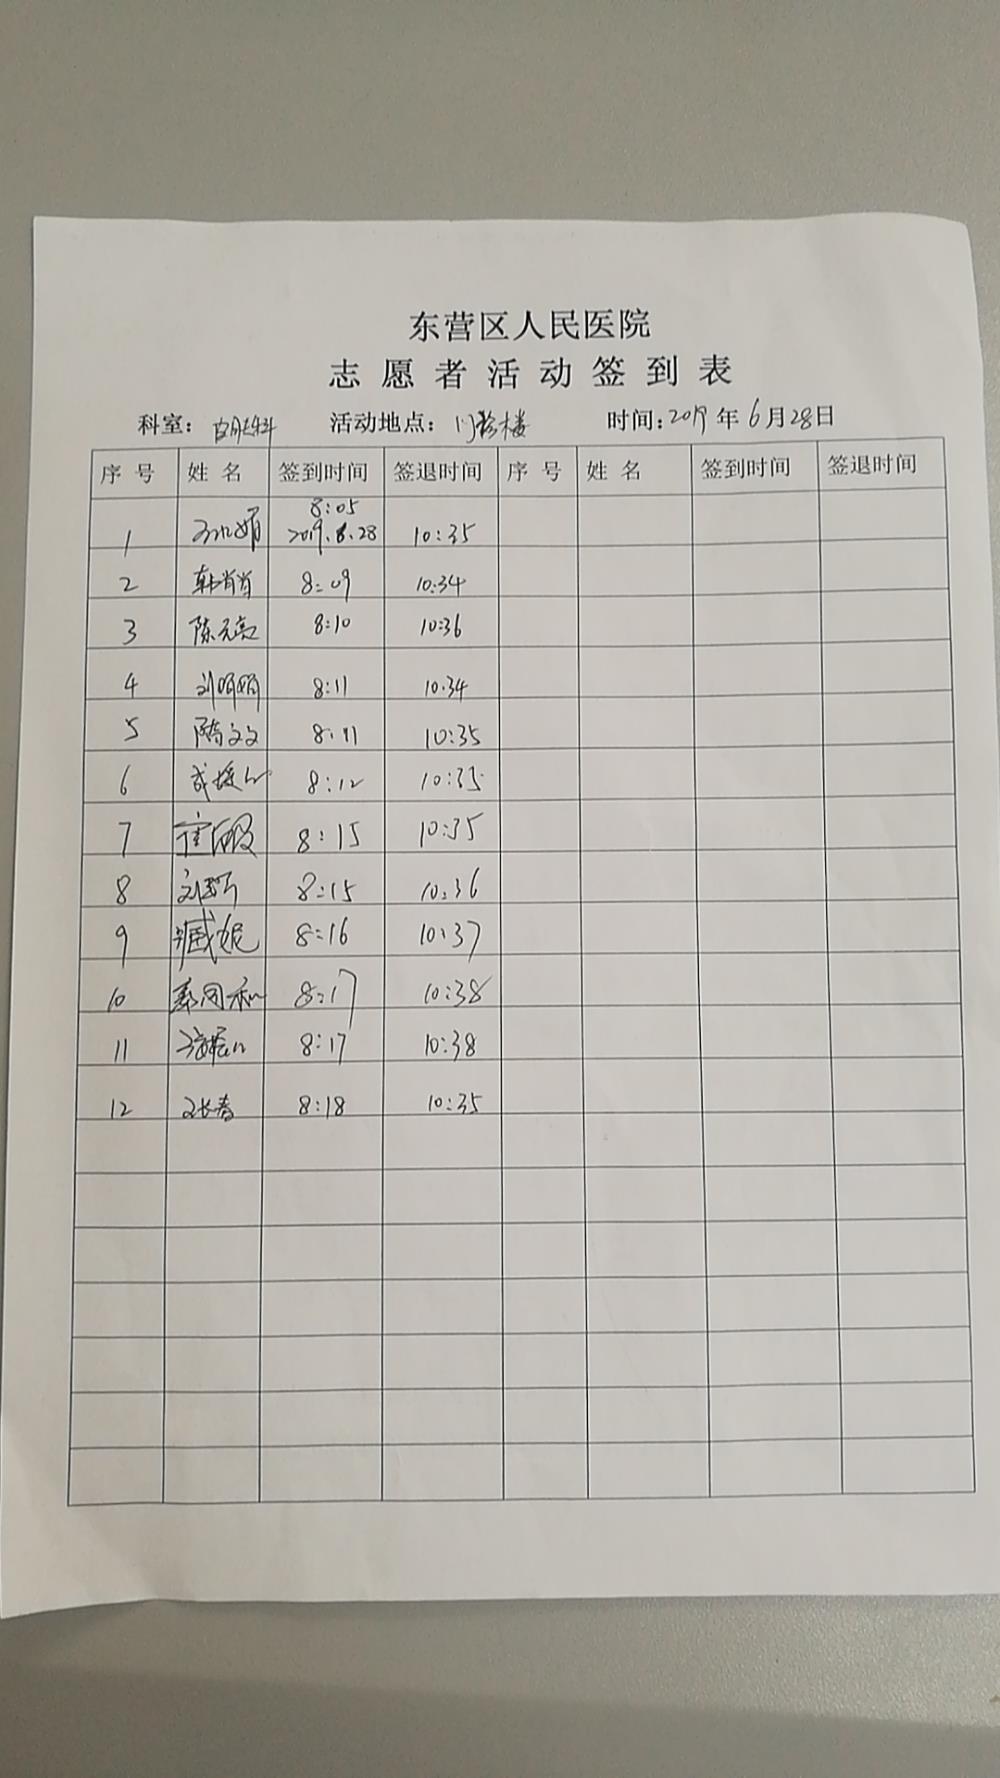 东营区人民医院
志愿者活动签到表
科室： 活动地点：门诊楼 时间：2019年6月28日
序号 姓名 签到时间 签退时间 序号 姓名 签到时间 签退时间
8:05
1 2019.6.28 10:35
2 韩肖肖 8:09 10:34
3 陈元亮 8:10 10:36
4 刘娟娟 8:11 10:34
5 陈文文 8:11 10:35
6 8:12 10:35
7 8:15 10:35
8 8:15 10:36
9 臧妮 8:16 10:37
10 8:17 10:38
11 8:17 10:38
12 张春 8:18 10:35